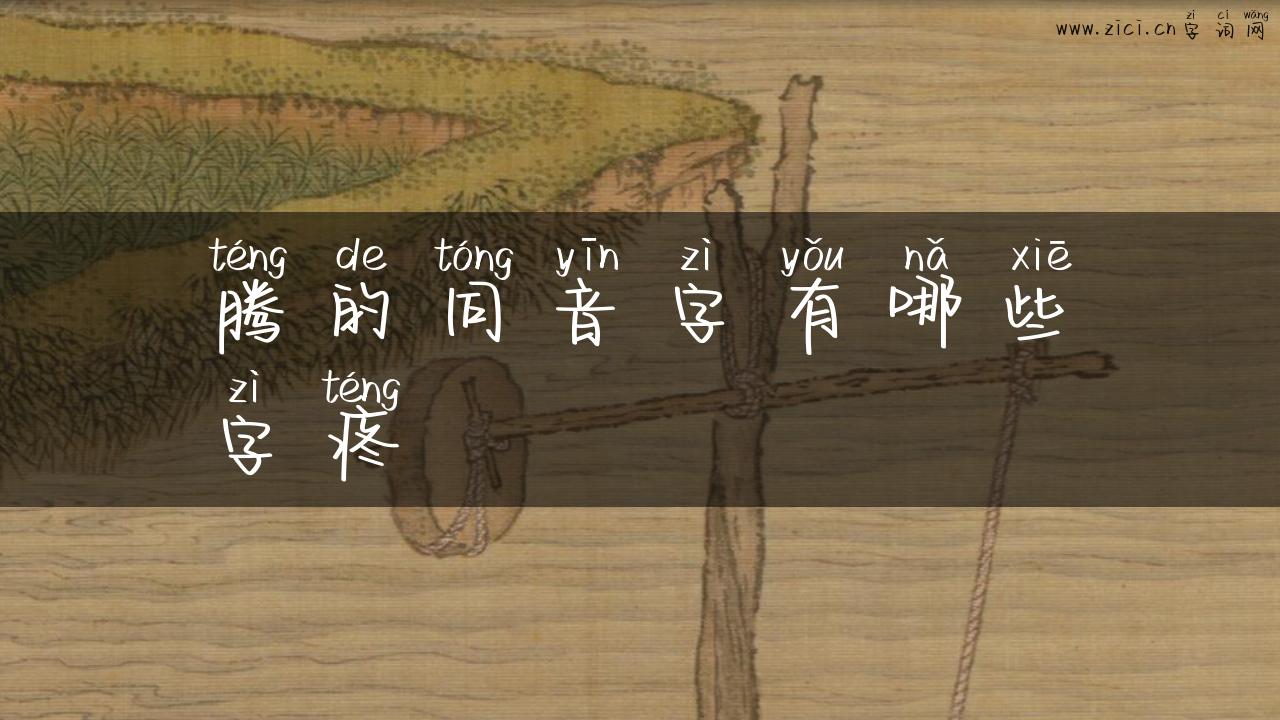 zì cí wǎng
www.zici.cn 字词网
téng de tóng yīn zì yǒu nǎ xiē
腾的同音字有哪些
zì téng
字疼